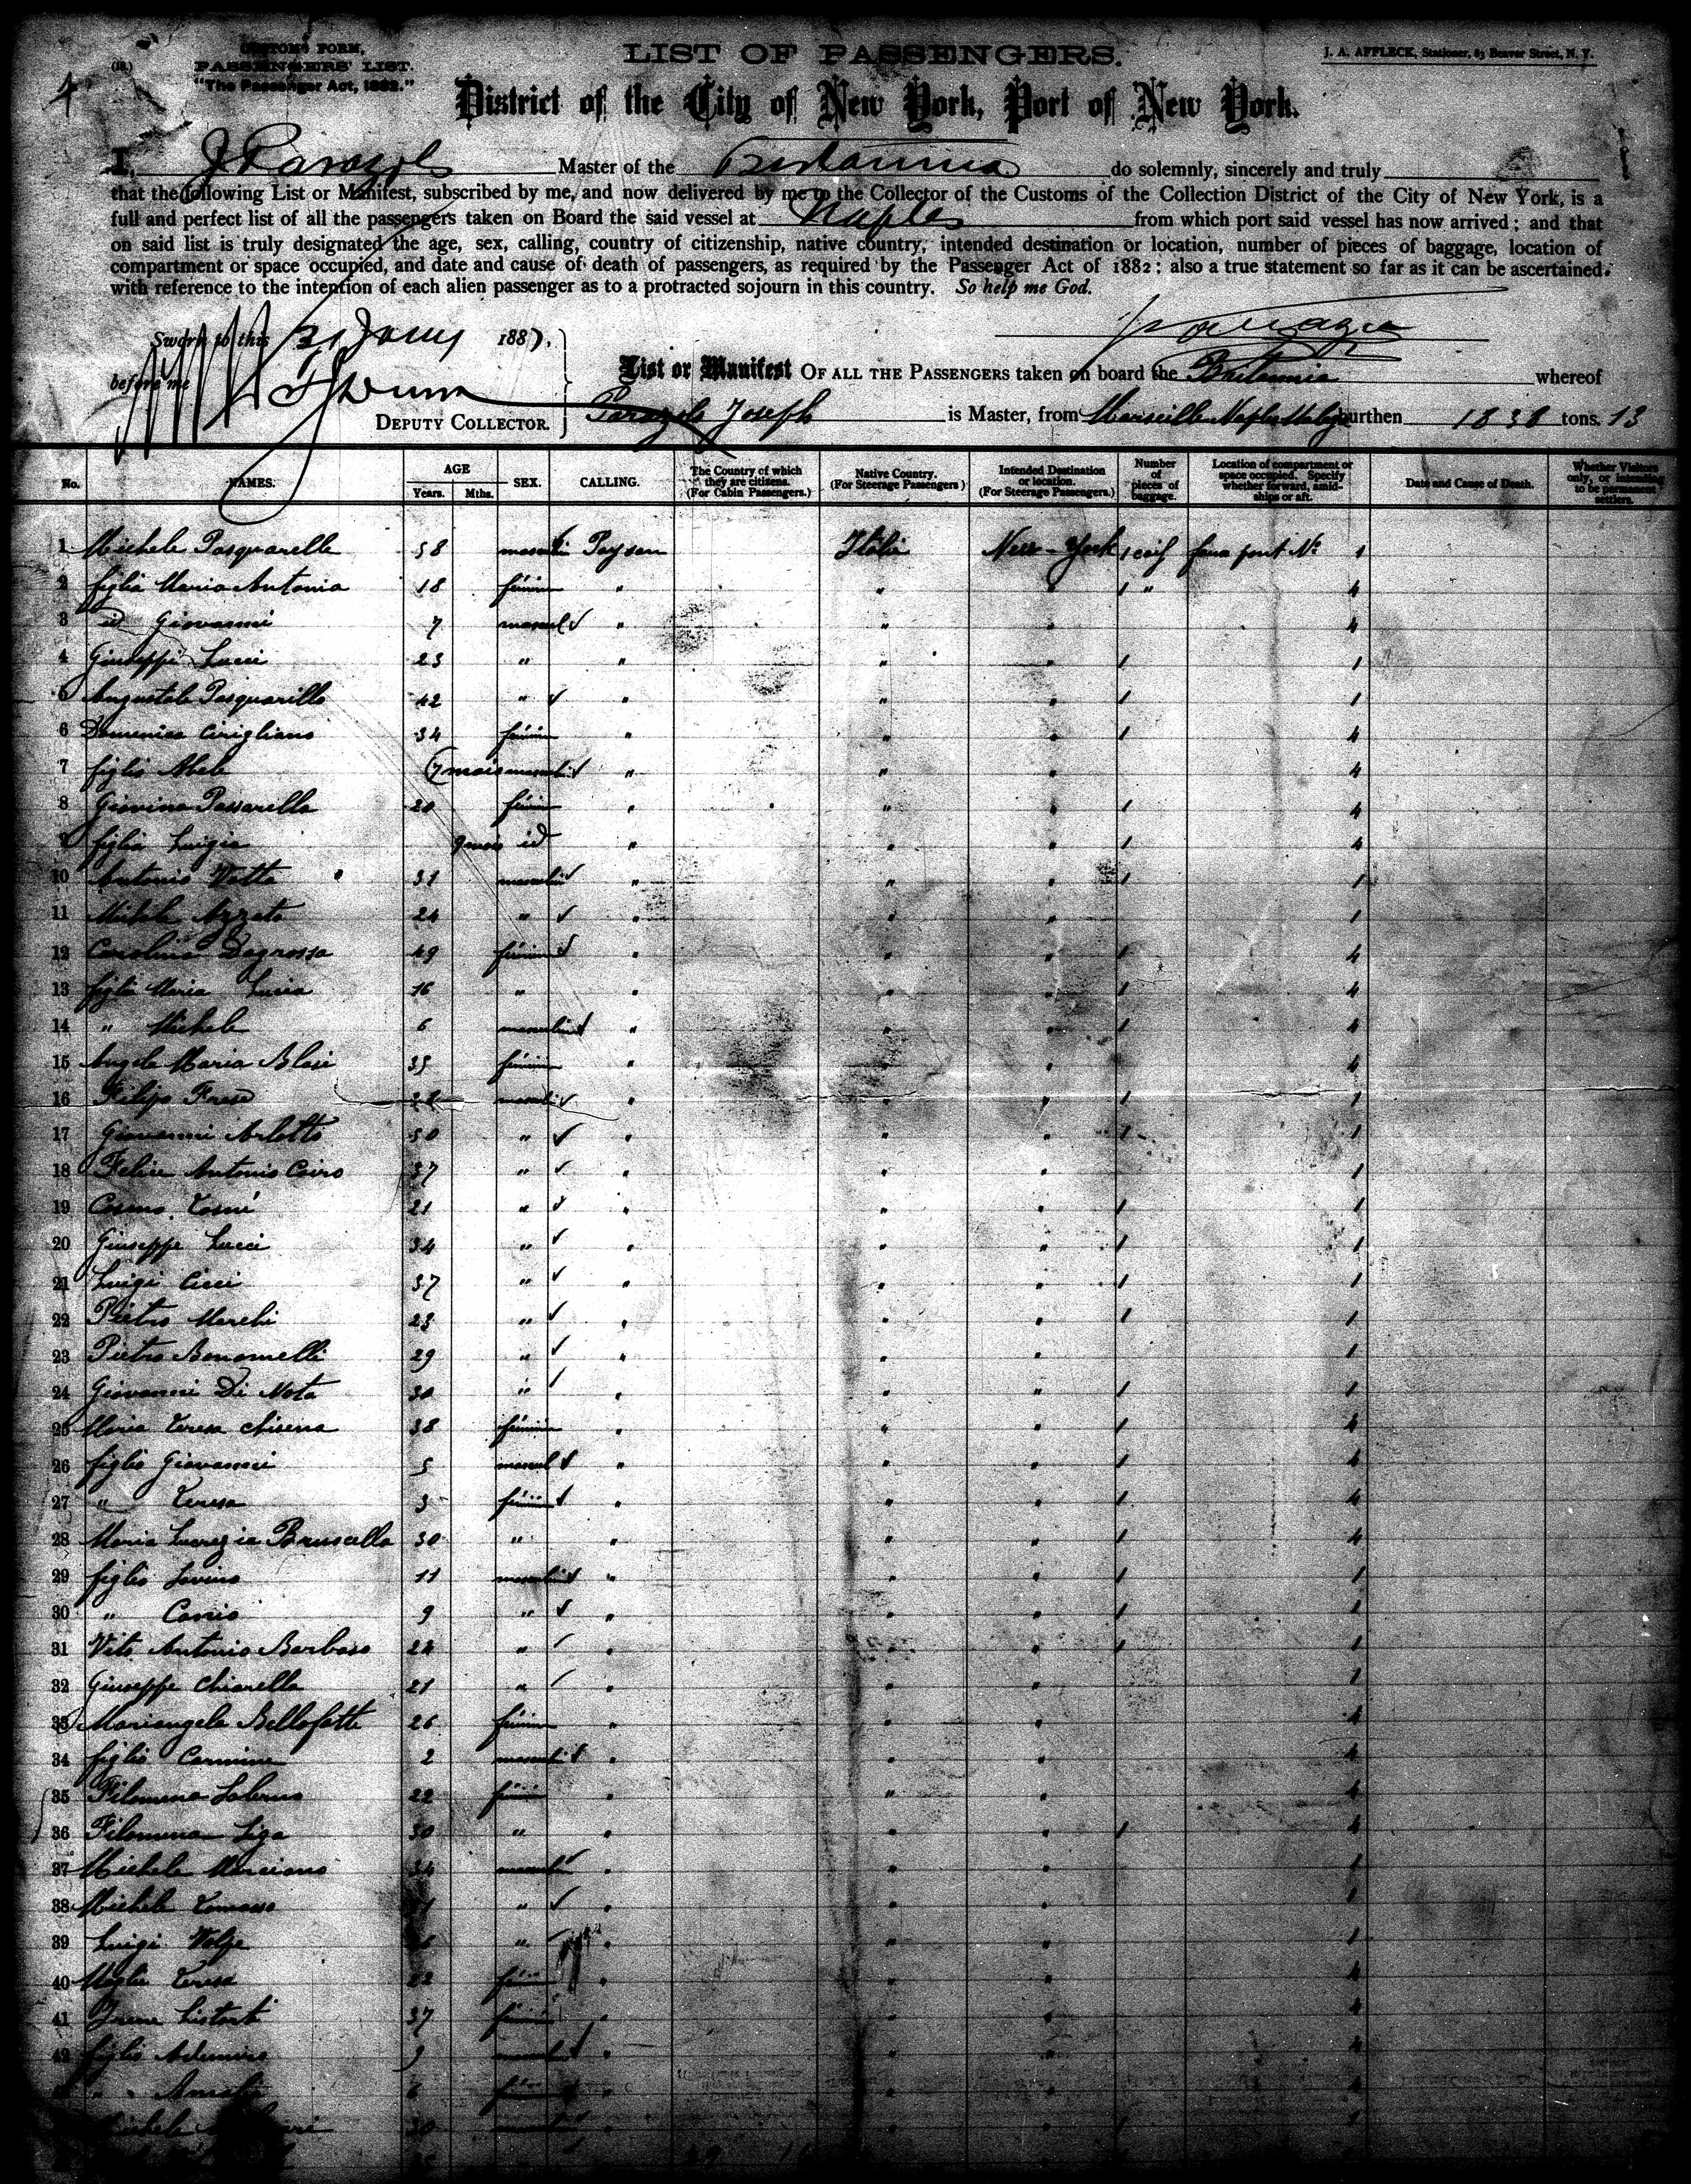 (18.)
4
CUSTOMS FORM,
PASSENGERS' LIST.
"The Passenger Act, 1882."
LIST OF PASSENGERS.
J. A. AFFLECK, Stationer, 83 Beaver Street, N. Y.
District of the City of New York, Port of New York.
I, Master of the Britannia do solemnly, sincerely and truly
that the following List or Manifest, subscribed by me, and now delivered by me to the Collector of the Customs of the Collection District of the City of New York, is a
full and perfect list of all the passengers taken on Board the said vessel at Naples from which port said vessel has now arrived; and that
on said list is truly designated the age, sex, calling, country of citizenship, native country, intended destination or location, number of pieces of baggage, location of
compartment or space occupied, and date and cause of death of passengers, as required by the Passenger Act of 1882; also a true statement so far as it can be ascertained.
with reference to the intention of each alien passenger as to a protracted sojourn in this country. So help me God.
Sworn to this 21 1887.
before me
List or Manifest OF ALL THE PASSENGERS taken on board the Britannia whereof
DEPUTY COLLECTOR. Joseph is Master, from Marseille Naples burthen 1830 tons. 13
No. NAMES. AGE Years. Mths. SEX. CALLING. The Country of which they are citizens. (For Cabin Passengers.) Native Country. (For Steerage Passengers) Intended Destination or location. (For Steerage Passengers.) Number of pieces of baggage. Location of compartment or space occupied. Specify whether forward, amidships or aft. Date and Cause of Death. Whether Visitors only, or intending to be permanent settlers.
1 Michele Pasquarelle 58 masculin Paysan Italie New-York 1 faux pont No 1
2 figlia Maria Antonia 18 féminin " " " 1 " 4
3 id Giovanni 7 mascul " " " 4
4 Giuseppe Lucci 23 " " " " 1 1
5 Angustale Pasquarillo 42 " " " " 1 1
6 Domenica Cirigliano 34 féminin " " " 1 4
7 figlio Abele 7 mois masculin " " " 4
8 Giovina Passarella 20 fémin " " " 1 4
9 figlia Luigia 9 mois id " " " 1 4
10 Antonio Votta 31 masculin " " " 1 1
11 Michele Azzato 24 " " " " 1
12 Carolina Dagrossa 49 féminin " " " 1 4
13 figlia Maria Lucia 16 " " " " 1 4
14 " Michele 6 masculin " " " 1 4
15 Angela Maria Blasi 35 féminin " " " 4
16 Filipo masculin " " " 1 1
17 Giovanni Arlotto 50 " " " " 1 1
18 Felice Antonio Cairo 37 " " " " 1
19 Cosmo 21 " " " " 1 1
20 Giuseppe Lucci 34 " " " " 1 1
21 Luigi Cicci 37 " " " " 1 1
22 Pietro Marchi 23 " " " " 1 1
23 Pietro Bonomelli 29 " " " " 1
24 Giovanni Di Mota 30 " " " " 1 1
25 Maria Teresa Chisena 38 féminin " " " 1 4
26 figlio Giovanni 5 mascul " " " 1 4
27 " Teresa 3 féminin " " " 1 4
28 Maria Lucrezia Bruscella 30 " " " " 1 4
29 figlio Savino 11 masculin " " " 1 1
30 " Canio 9 " " " " 1 1
31 Vito Antonio Barbaso 24 " " " " 1 1
32 Giuseppe Chiarella 21 " " " " 1
33 Mariangela Bellofatto 26 fémin " " " 4
34 figlio Carmine 2 masculin " " " 4
35 Filomena Salerno 22 fémin " " " 4
36 Filomena Liga 30 " " " " 1 4
37 Michele Marciano 34 masculin " " " 1
38 Michele Tomasso " " " " 1
39 Luigi Volpe " " " " 1
40 Moglie Teresa 22 fémin " " " 4
41 Irene Listorti 37 fémin " " " 4
42 figlio 9 mascul " " " 4
" " 6 fémin " " " 4
Michele 30 masculin " " " 1 1